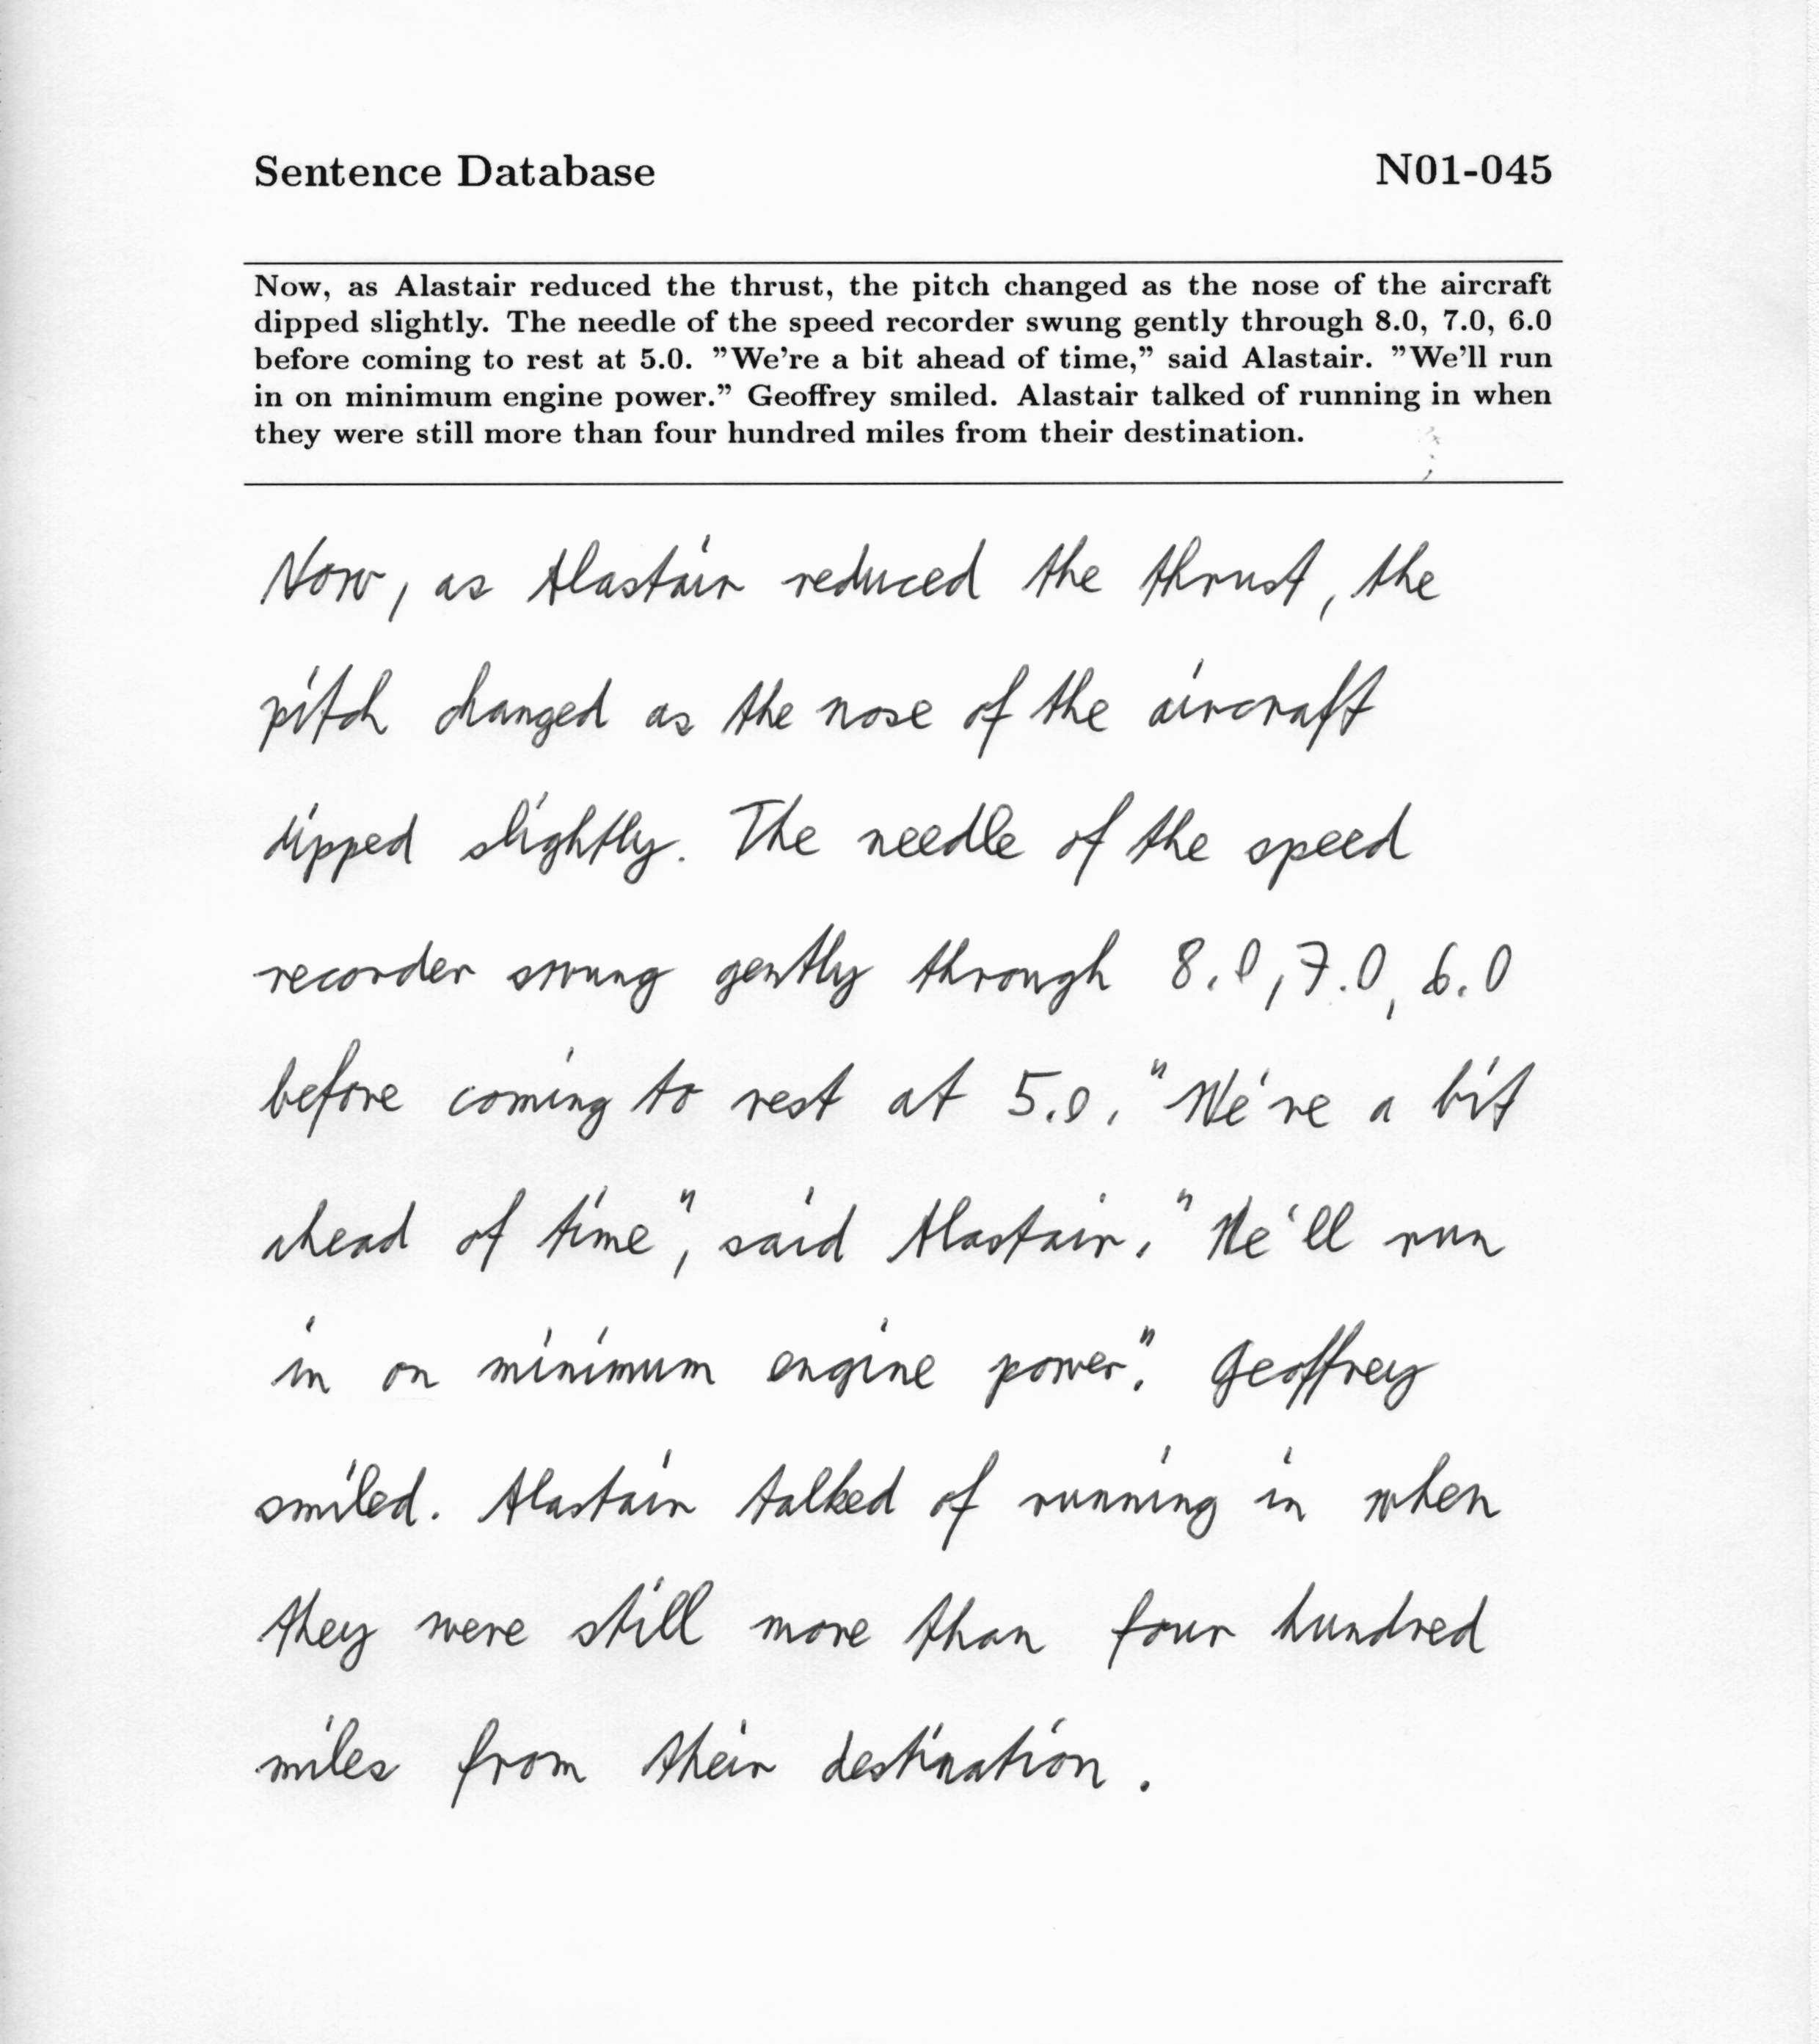 Sentence Database N01-045
Now, as Alastair reduced the thrust, the pitch changed as the nose of the aircraft
dipped slightly. The needle of the speed recorder swung gently through 8.0, 7.0, 6.0
before coming to rest at 5.0. ”We're a bit ahead of time,” said Alastair. ”We'll run
in on minimum engine power.” Geoffrey smiled. Alastair talked of running in when
they were still more than four hundred miles from their destination.
Now, as Alastair reduced the thrust, the
pitch changed as the nose of the aircraft
dipped slightly. The needle of the speed
recorder swung gently through 8.0, 7.0, 6.0
before coming to rest at 5.0. "We're a bit
ahead of time", said Alastair. "We'll run
in on minimum engine power". Geoffrey
smiled. Alastair talked of running in when
they were still more than four hundred
miles from their destination.